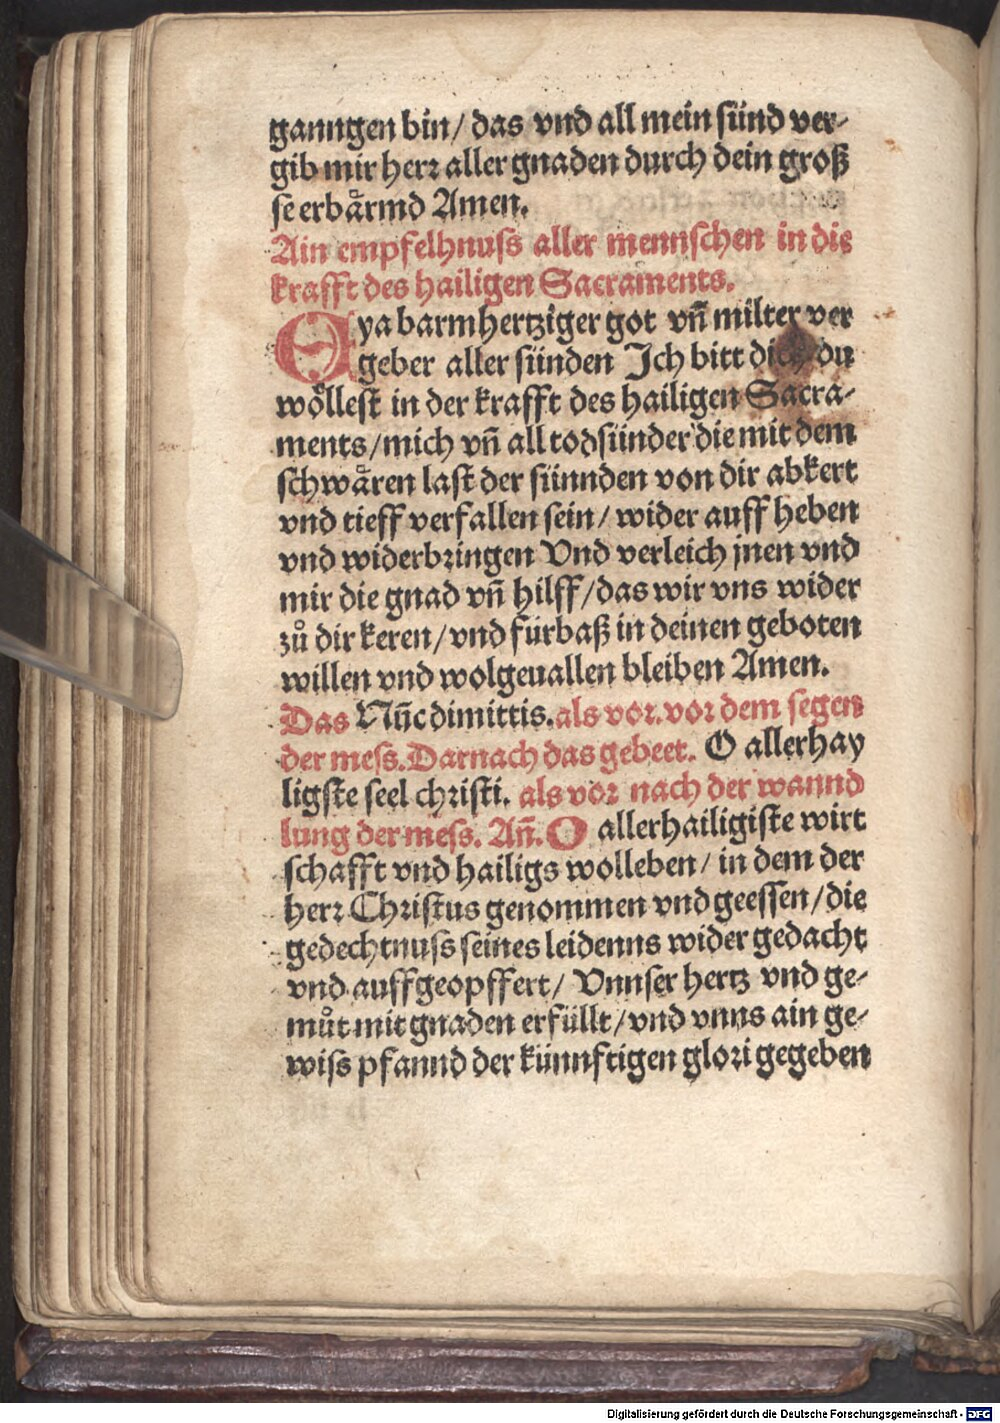 ganngen bin/ das vnd all mein sünd ver-
gib mir herꝛ aller gnaden durch dein groß
se erbaͤrmd Amen.
Ain empfelhnuss aller mennschen in die
krafft des hailigen Sacraments.
Eya barmhertziger got vn̄ milter ver
geber aller sünden Ich bitt dich du
woͤllest in der krafft des hailigen Sacra-
ments/mich vn̄ all todsünder die mit dem
schwaͤren last der sünnden von dir abkert
vnd tieff verfallen sein/ wider auff heben
vnd widerbꝛingen Vnd verleich jnen vnd
mir die gnad vn̄ hilff/das wir vns wider
zuͦ dir keren/vnd fürbaß in deinen geboten
willen vnd wolgeuallen bleiben Amen.
Das Nūc dimittis. als voꝛ. voꝛ dem segen
der mess. Darnach das gebeet. O allerhay
ligste seel chꝛisti. als voꝛ nach der wannd
lung der mess. An̄. O allerhailigiste wirt
schafft vnd hailigs wolleben/ in dem der
herꝛ Chꝛistus genommen vnd geessen/die
gedechtnuss seines leidenns wider gedacht
vnd auffgeopffert/ Vnnser hertz vnd ge-
muͦt mit gnaden erfüllt/vnd vnns ain ge-
wiss pfannd der künnftigen gloꝛi gegeben
Digitalisierung gefördert durch die Deutsche Forschungsgemeinschaft - DFG